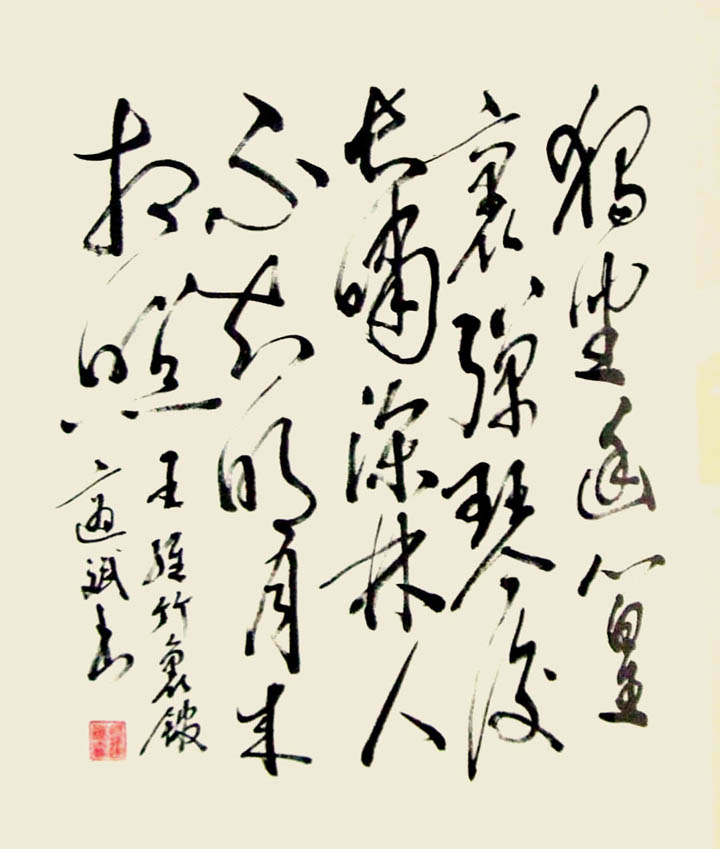 獨坐幽篁
裏彈琴復
長嘯深林人
不知明月來
相照
王維竹裏館
斌書